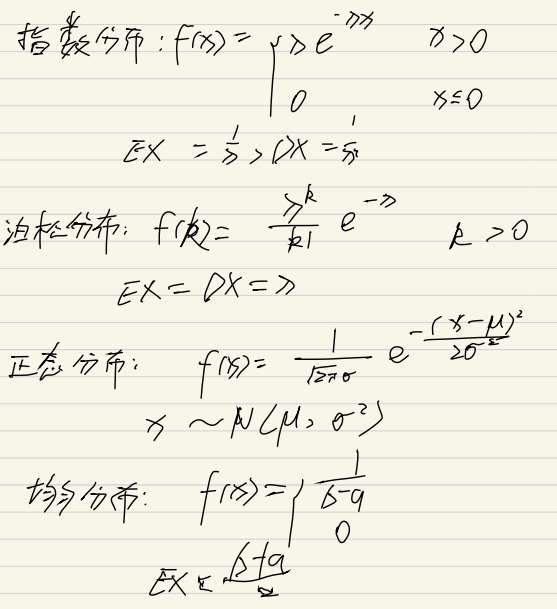 指数分布: f(x) = { λe^{-λx} x>0
0 x≤0
EX = 1/λ, DX = 1/λ²
泊松分布: f(k) = λ^k/k! e^{-λ} k>0
EX = DX = λ
正态分布: f(x) = 1/(√2π σ) e^{-(x-μ)²/2σ²}
x ~ N(μ, σ²)
均匀分布: f(x) = { 1/(b-a)
0
EX = (b+a)/2